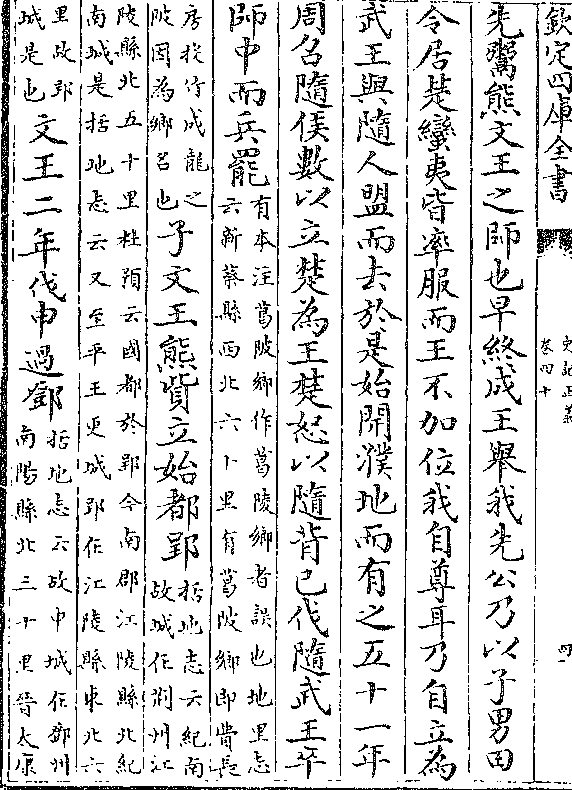 欽定四庫全書
史記正義
卷四十
四
先鬻熊文王之師也早終成王舉我先公乃以子男田
令居楚蠻夷皆率服而王不加位我自尊耳乃自立為
武王與隨人盟而去於是始開濮地而有之五十一年
周召隨侯數以立楚為王楚怒以隨背已伐隨武王卒
師中而兵罷
有本注葛陂鄉作葛陵鄉者誤也地里志
云新蔡縣西北六十里有葛陂鄉即費長
房投竹成龍之
陂因為鄉名也
子文王熊貲立始都郢
括地志云紀南
故城在荆州江
陵縣北五十里杜預云國都於郢今南郡江陵縣北紀
南城是括地志云又至平王更城郢在江陵縣東北六
里故郢
城是也
文王二年伐申過鄧
括地志云故申城在鄧州
南陽縣北三十里晉太康